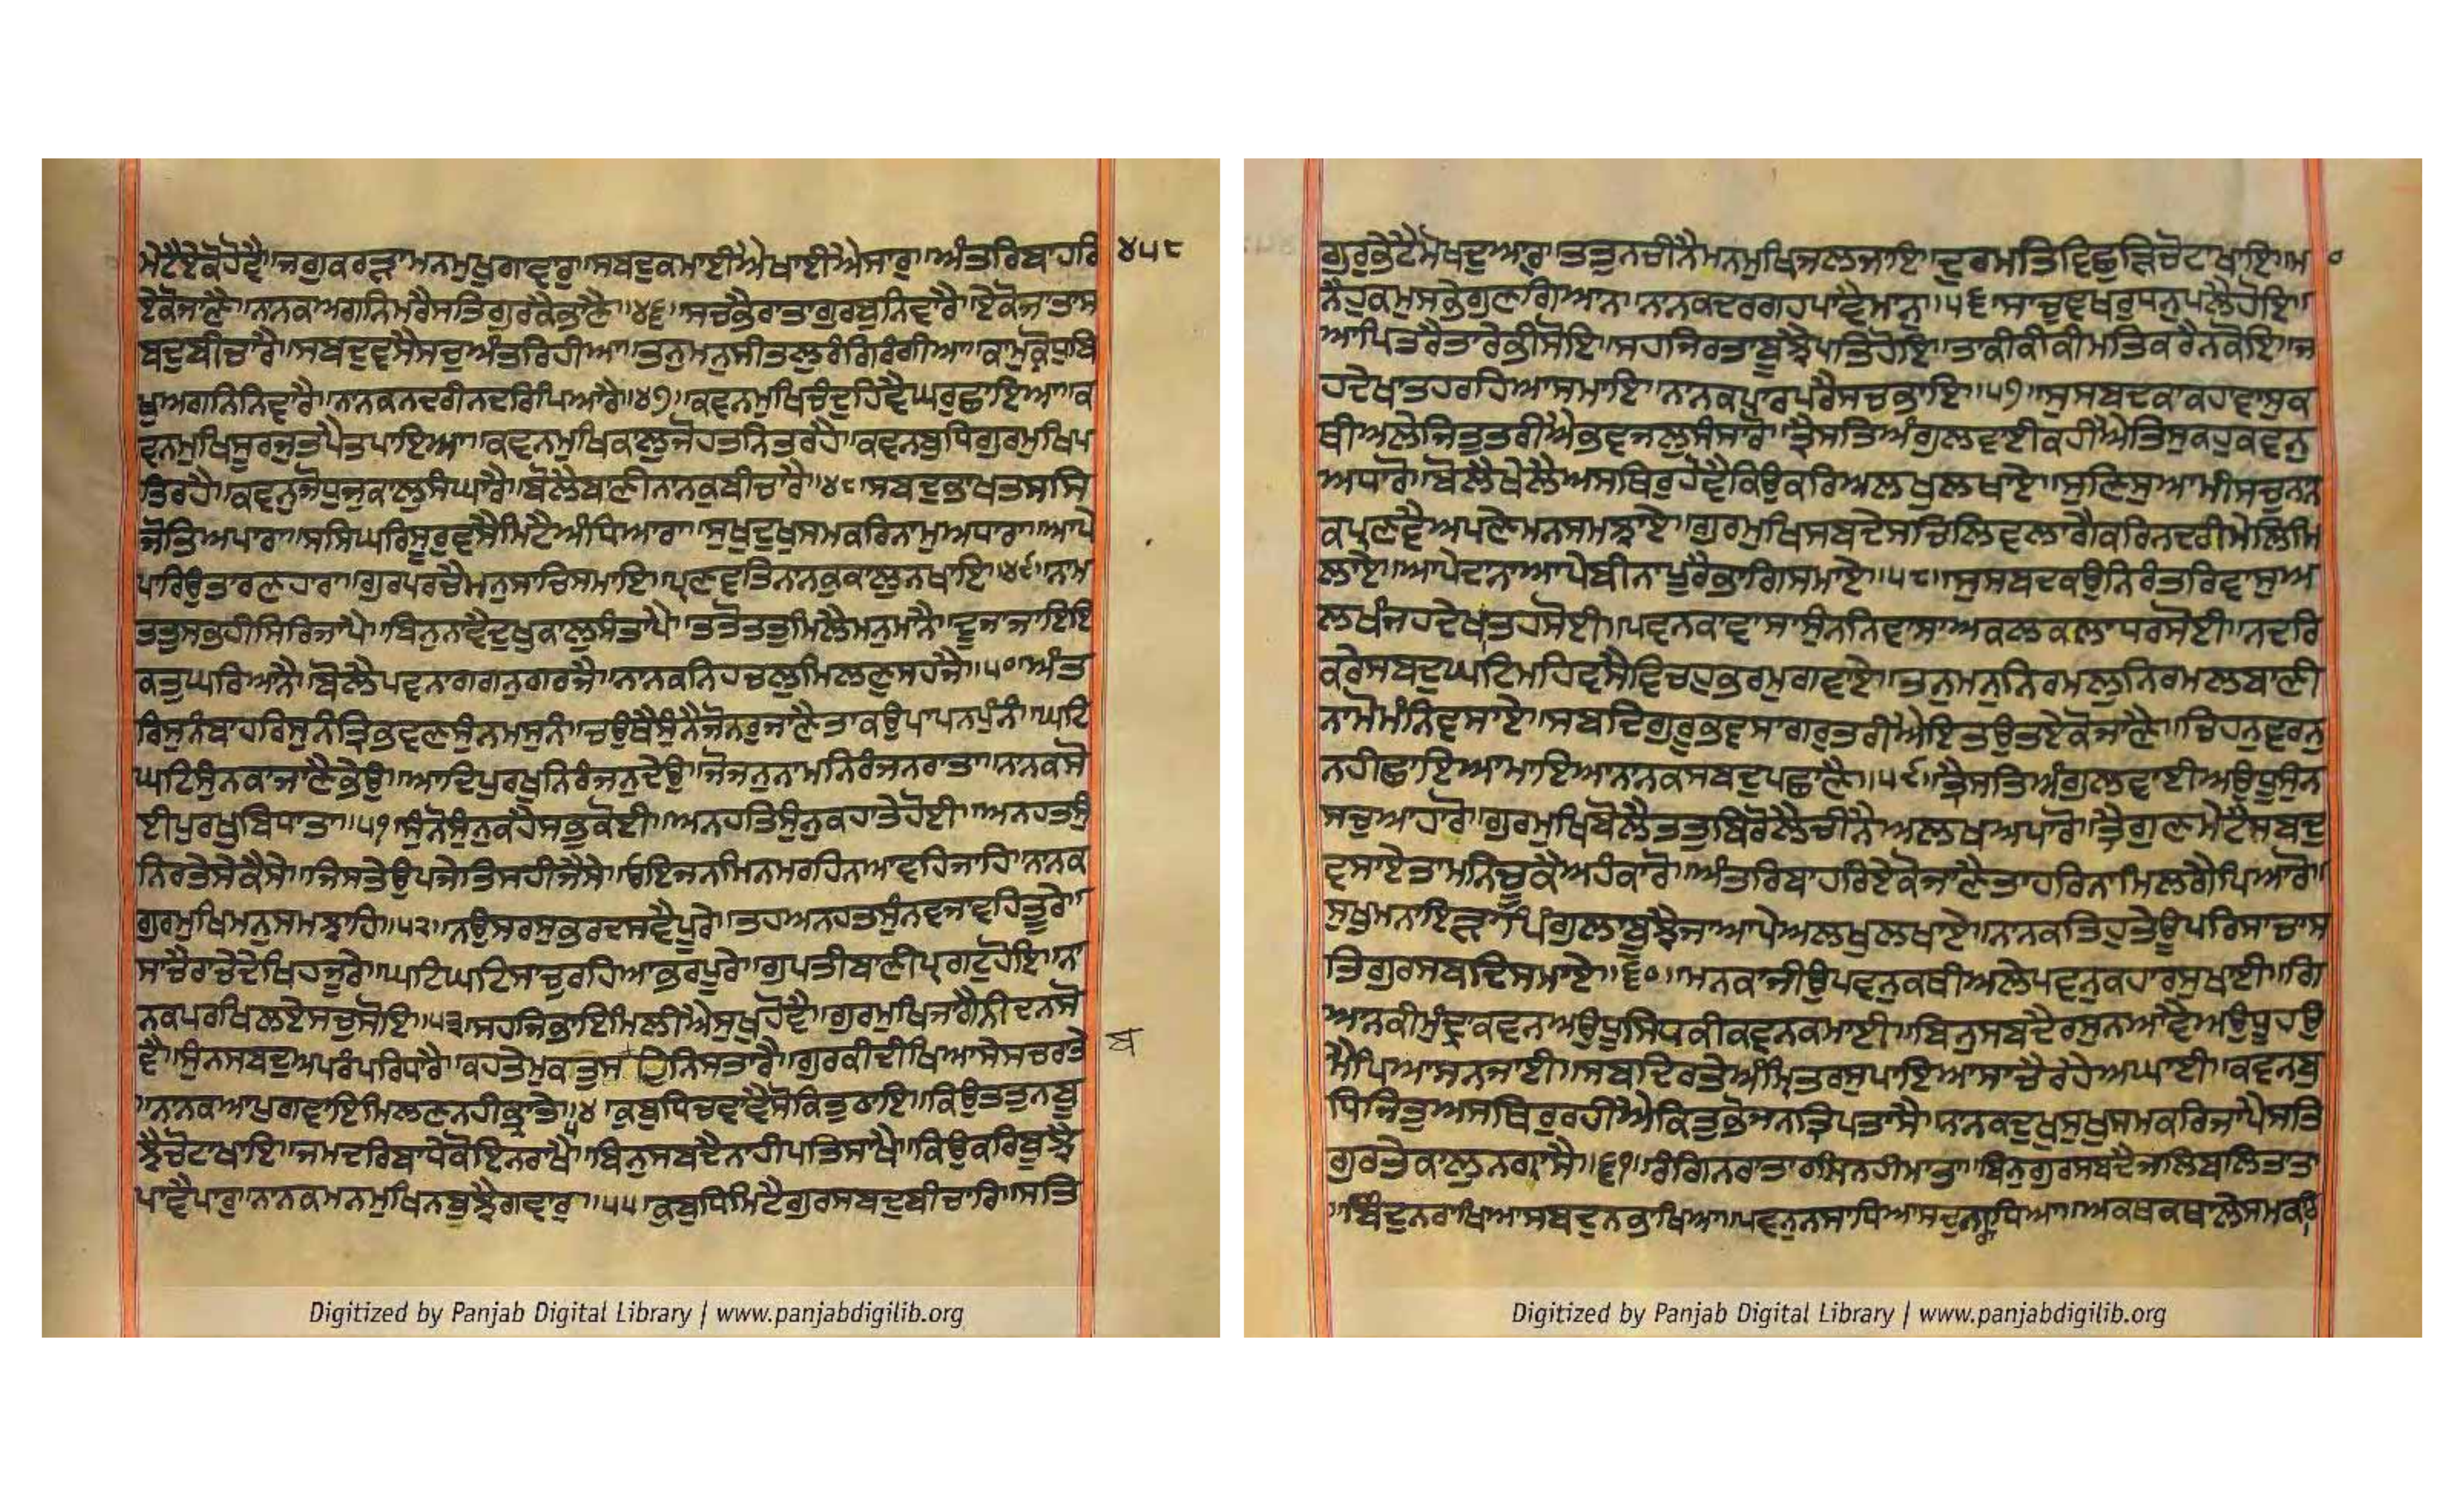 ਮੇਟੈਏਕੋਹੋਵੈ॥ਜਗੁਕਰੜਾਮਨਮੁਖੁਗਾਵਾਰੁ॥ਸਬਦੁਕਮਾਈਐਖਾਈਐਸਾਰੁ॥ਅੰਤਰਿਬਾਹਰਿ ੪੫੮
ਏਕੋਜਾਣੈ॥ਨਾਨਕਅਗਨਿਮਰੈਸਤਿਗੁਰਕੈਭਾਣੈ॥੪੬॥ਸਚਭੈਰਾਤਾਗਰਬੁਨਿਵਾਰੈ॥ਏਕੋਜਾਤਾਸ
ਬਦੁਬੀਚਾਰੈ॥ਸਬਦੁਵਸੈਸਚੁਅੰਤਰਿਹੀਆ॥ਤਨੁਮਨੁਸੀਤਲੁਰੰਗਿਰੰਗੀਆ॥ਕਾਮੁਕ੍ਰੋਧੁਬਿ
ਖੁਅਗਨਿਨਿਵਾਰੇ॥ਨਾਨਕਨਦਰੀਨਦਰਿਪਿਆਰੇ॥੪੭॥ਕਵਨਮੁਖਿਚੰਦੁਹਿਵੈਘਰੁਛਾਇਆ॥ਕ
ਵਨਮੁਖਿਸੂਰਜੁਤਪੈਤਪਾਇਆ॥ਕਵਨਮੁਖਿਕਾਲੁਜੋਹਤਨਿਤਰਹੈ॥ਕਵਨਬੁਧਿਗੁਰਮੁਖਿਪ
ਤਿਰਹੈ॥ਕਵਨੁਜੋਧੁਜੁਕਾਲੁਸੰਘਾਰੈ॥ਬੋਲੈਬਾਣੀਨਾਨਕੁਬੀਚਾਰੈ॥੪੮॥ਸਬਦੁਭਾਖਤਸਸਿ
ਜੋਤਿਅਪਾਰਾ॥ਸਸਿਘਰਿਸੂਰੁਵਸੈਮਿਟੈਅੰਧਿਆਰਾ॥ਸੁਖੁਦੁਖੁਸਮਕਰਿਨਾਮੁਅਧਾਰਾ॥ਆਪੇ
ਪਾਰਿਉਤਾਰਣਹਾਰਾ॥ਗੁਰਪਰਚੈਮਨੁਸਾਚਿਸਮਾਇ॥ਪ੍ਰਣਵਤਿਨਾਨਕੁਕਾਲੁਨਖਾਇ॥੪੯॥ਨਾਮ
ਤਤੁਸਭਹੀਸਿਰਿਜਾਪੈ॥ਬਿਨੁਨਾਵੈਦੁਖੁਕਾਲੁਸੰਤਾਪੈ॥ਤਤੋਤਤੁਮਿਲੈਮਨੁਮਾਨੈ॥ਦੂਜਾਜਾਇਇ
ਕਤੁਘਰਿਆਨੈ॥ਬੋਲੈਪਵਨਾਗਗਨੁਗਰਜੈ॥ਨਾਨਕਨਿਹਚਲੁਮਿਲਣੁਸਹਜੈ॥੫੦॥ਅੰਤ
ਰਿਸੁਨੰਬਾਹਰਿਸੁਨੰਤ੍ਰਿਭਵਣਸੁੰਨਮਸੁਨੰ॥ਚਉਥੈਸੁੰਨੈਜੋਨਰੁਜਾਣੈਤਾਕਉਪਾਪਨਪੁੰਨੰ॥ਘਟਿ
ਘਟਿਸੁੰਨਕਾਜਾਣੈਭੇਉ॥ਆਦਿਪੁਰਖੁਨਿਰੰਜਨਦੇਉ॥ਜੋਜਨੁਨਾਮਨਿਰੰਜਨਰਾਤਾ॥ਨਾਨਕਸੋ
ਈਪੁਰਖੁਬਿਧਾਤਾ॥੫੧॥ਸੁੰਨੋਸੁੰਨੁਕਹੈਸਭੁਕੋਈ॥ਅਨਹਤਿਸੁੰਨੁਕਹਾਤੇਹੋਈ॥ਅਨਹਤਸੁੰ
ਨਿਰਤੇਸੇਕੈਸੇ॥ਜਿਸਤੇਉਪਜੇਤਿਸਹੀਜੈਸੇ॥ਓਇਜਨਮਿਨਮਰਹਿਨਾਆਵਹਿਜਾਹਿ॥ਨਾਨਕ
ਗੁਰਮੁਖਿਮਨੁਸਮਝਾਹਿ॥੫੨॥ਨਉਸਰਸੁਭਰਦਸਵੈਪੂਰੇ॥ਤਹਅਨਹਤਸੁੰਨਵਜਾਵਹਿਤੂਰੇ॥
ਸਾਚੈਰਾਚੇਦੇਖਿਹਜੂਰੇ॥ਘਟਿਘਟਿਸਾਚੁਰਹਿਆਭਰਪੂਰੇ॥ਗੁਪਤੀਬਾਣੀਪ੍ਰਗਟੁਹੋਇ॥ਨਾ
ਨਕਪਰਖਿਲਏਸਚੁਸੋਇ॥੫੩॥ਸਹਜਿਭਾਇਮਿਲੀਐਸੁਖੁਹੋਵੈ॥ਗੁਰਮੁਖਿਜਾਗੈਨੀਦਨਸੋ
ਵੈ॥ਸੁੰਨਸਬਦੁਅਪਰੰਪਰਿਧਾਰੈ॥ਕਹਤੇਮੁਕਤੁਸ ਦਿਨਿਸਤਾਰੈ॥ਗੁਰਕੀਦੀਖਿਆਸੇਸਚਰਾਤੇ ਬ
॥ਨਾਨਕਆਪੁਗਵਾਇਮਿਲਣਨਹੀਭ੍ਰਾਤੇ॥੫੪॥ਕੁਬੁਧਿਚਵਾਵੈਸੋਕਿਤੁਠਾਇ॥ਕਿਉਤਤੁਨਬੂ
ਝੈਚੋਟਾਖਾਇ॥ਜਮਦਰਿਬਾਧੇਕੋਇਨਰਾਖੈ॥ਬਿਨੁਸਬਦੈਨਾਹੀਪਤਿਸਾਖੈ॥ਕਿਉਕਰਿਬੂਝੈ
ਪਾਵੈਪਾਰੁ॥ਨਾਨਕਮਨਮੁਖਿਨਬੁਝੈਗਵਾਰੁ॥੫੫॥ਕੁਬੁਧਿਮਿਟੈਗੁਰਸਬਦੁਬੀਚਾਰਿ॥ਸਤਿ
Digitized by Panjab Digital Library | www.panjabdigilib.org
ਗੁਰੁਭੇਟੈਮੋਖਦੁਆਰ॥ਤਤੁਨਚੀਨੈਮਨਮੁਖਿਜਲਜਾਇ॥ਦੁਰਮਤਿਵਿਛੁੜਿਚੋਟਾਖਾਇ॥ਮਾ
ਨੈਹੁਕਮੁਸਭੇਗੁਣਗਿਆਨ॥ਨਾਨਕਦਰਗਹਪਾਵੈਮਾਨੁ॥੫੬॥ਸਾਚੁਵਖਰੁਧਨੁਪਲੈਹੋਇ॥
ਆਪਿਤਰੈਤਾਰੇਭੀਸੋਇ॥ਸਹਜਿਰਤਾਬੂਝੈਪਤਿਹੋਇ॥ਤਾਕੀਕੀਮਤਿਕਰੈਨਕੋਇ॥ਜ
ਹਦੇਖਾਤਹਰਹਿਆਸਮਾਇ॥ਨਾਨਕਪਾਰਪਰੈਸਚਭਾਇ॥੫੭॥ਸੁਸਬਦਕਾਕਹਾਵਾਸੁਕ
ਥੀਅਲੇਜਿਤੁਤਰੀਐਭਵਜਲੁਸੰਸਾਰੋ॥ਤ੍ਰੈਸਤਿਅੰਗੁਲਵਾਈਕਹੀਐਤਿਸੁਕਹੁਕਵਨੁ
ਅਧਾਰੋ॥ਬੋਲੈਖੇਲੈਅਸਥਿਰੁਹੋਵੈਕਿਉਕਰਿਅਲਖੁਲਖਾਏ॥ਸੁਣਿਸੁਆਮੀਸਚੁਨਾਨ
ਕਪ੍ਰਣਵੈਅਪਣੇਮਨਸਮਝਾਏ॥ਗੁਰਮੁਖਿਸਬਦੇਸਚਿਲਿਵਲਾਗੈਕਰਿਨਦਰੀਮੇਲਿਮਿ
ਲਾਏ॥ਆਪੇਦਾਨਾਆਪੇਬੀਨਾਪੂਰੈਭਾਗਿਸਮਾਏ॥੫੮॥ਸੁਸਬਦਕਉਨਿਰੰਤਰਿਵਾਸੁਅ
ਲਖੰਜਹਦੇਖਾਤਹਸੋਈ॥ਪਵਨਕਾਵਾਸਾਸੁੰਨਨਿਵਾਸਾਅਕਲਕਲਾਧਰਸੋਈ॥ਨਦਰਿ
ਕਰੇਸਬਦੁਘਟਿਮਹਿਵਸੈਵਿਚਹੁਭਰਮੁਗਵਾਏ॥ਤਨੁਮਨੁਨਿਰਮਲੁਨਿਰਮਲਬਾਣੀ
ਨਾਮੋਮੰਨਿਵਸਾਏ॥ਸਬਦਿਗੁਰੂਭਵਸਾਗਰੁਤਰੀਐਇਤਉਤਏਕੋਜਾਣੈ॥ਚਿਹਨੁਵਰਨੁ
ਨਹੀਛਾਇਆਮਾਇਆਨਾਨਕਸਬਦੁਪਛਾਣੈ॥੫੯॥ਤ੍ਰੈਸਤਿਅੰਗੁਲਵਾਈਅਉਧੂਸੁੰਨ
ਸਚੁਆਹਾਰੋ॥ਗੁਰਮੁਖਿਬੋਲੈਤਤੁਬਿਰੋਲੈਚੀਨੈਅਲਖਅਪਾਰੋ॥ਤ੍ਰੈਗੁਣਮੇਟੈਸਬਦੁ
ਵਸਾਏਤਾਮਨਿਚੂਕੈਅਹੰਕਾਰੋ॥ਅੰਤਰਿਬਾਹਰਿਏਕੋਜਾਣੈਤਾਹਰਿਨਾਮਿਲਗੈਪਿਆਰੋ॥
ਸੁਖੁਮਨਾਇੜਾਪਿੰਗੁਲਾਬੂਝੈਜਾਆਪੇਅਲਖੁਲਖਾਏ॥ਨਾਨਕਤਿਹੁਤੇਊਪਰਿਸਾਚਾਸ
ਤਿਗੁਰਸਬਦਿਸਮਾਏ॥੬੦॥ਮਨਕਾਜੀਉਪਵਨੁਕਥੀਅਲੇਪਵਨੁਕਹਾਰਸੁਖਾਈ॥ਗਿ
ਆਨਕੀਮੁੰਦ੍ਰਾਕਵਨਅਉਧੂਸਿਧਕੀਕਵਨਕਮਾਈ॥ਬਿਨੁਸਬਦੈਰਸੁਨਆਵੈਅਉਧੂਹਉ
ਮੈਪਿਆਸਨਜਾਈ॥ਸਬਦਿਰਤੇਅੰਮ੍ਰਿਤਰਸੁਪਾਇਆਸਾਚੈਰਹੇਅਘਾਈ॥ਕਵਨਬੁ
ਧਿਜਿਤੁਅਸਥਿਰੁਰਹੀਐਕਿਤੁਭੋਜਨਤ੍ਰਿਪਤਾਸੈ॥ਨਾਨਕਦੁਖੁਸੁਖੁਸਮਕਰਿਜਾਪੈਸਤਿ
ਗੁਰਤੇਕਾਲੁਨਗ੍ਰਾਸੈ॥੬੧॥ਰੰਗਿਨਰਾਤਾਰਸਿਨਹੀਮਾਤਾ॥ਬਿਨੁਗੁਰਸਬਦੈਜਲਿਬਲਿਤਾਤਾ
॥ਬਿੰਦੁਨਰਾਖਿਆਸਬਦੁਨਭਾਖਿਆ॥ਪਵਨੁਨਸਾਧਿਆਸਚੁਨਾਰਾਧਿਆ॥ਅਕਥਕਥਾਲੇਸਮਕਰਿ
Digitized by Panjab Digital Library | www.panjabdigilib.org